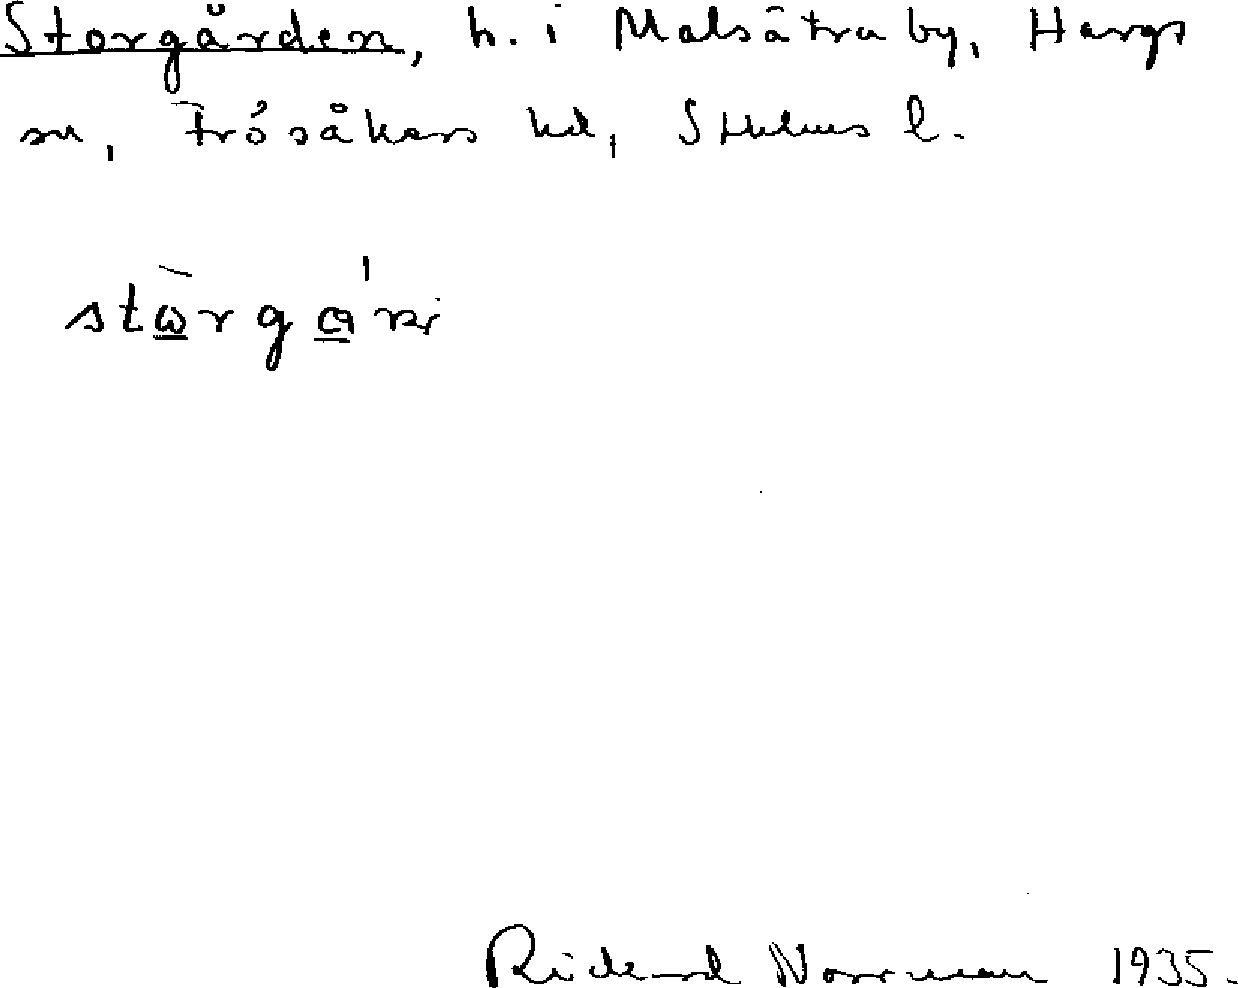 Storgården, h. i Malsätra by, Hargs
sn, Frösåkers hd, Sthlms l.
Rickard Norrman 1935.